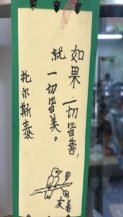 如果一切皆善，
就一切皆美。
托尔斯泰
友善